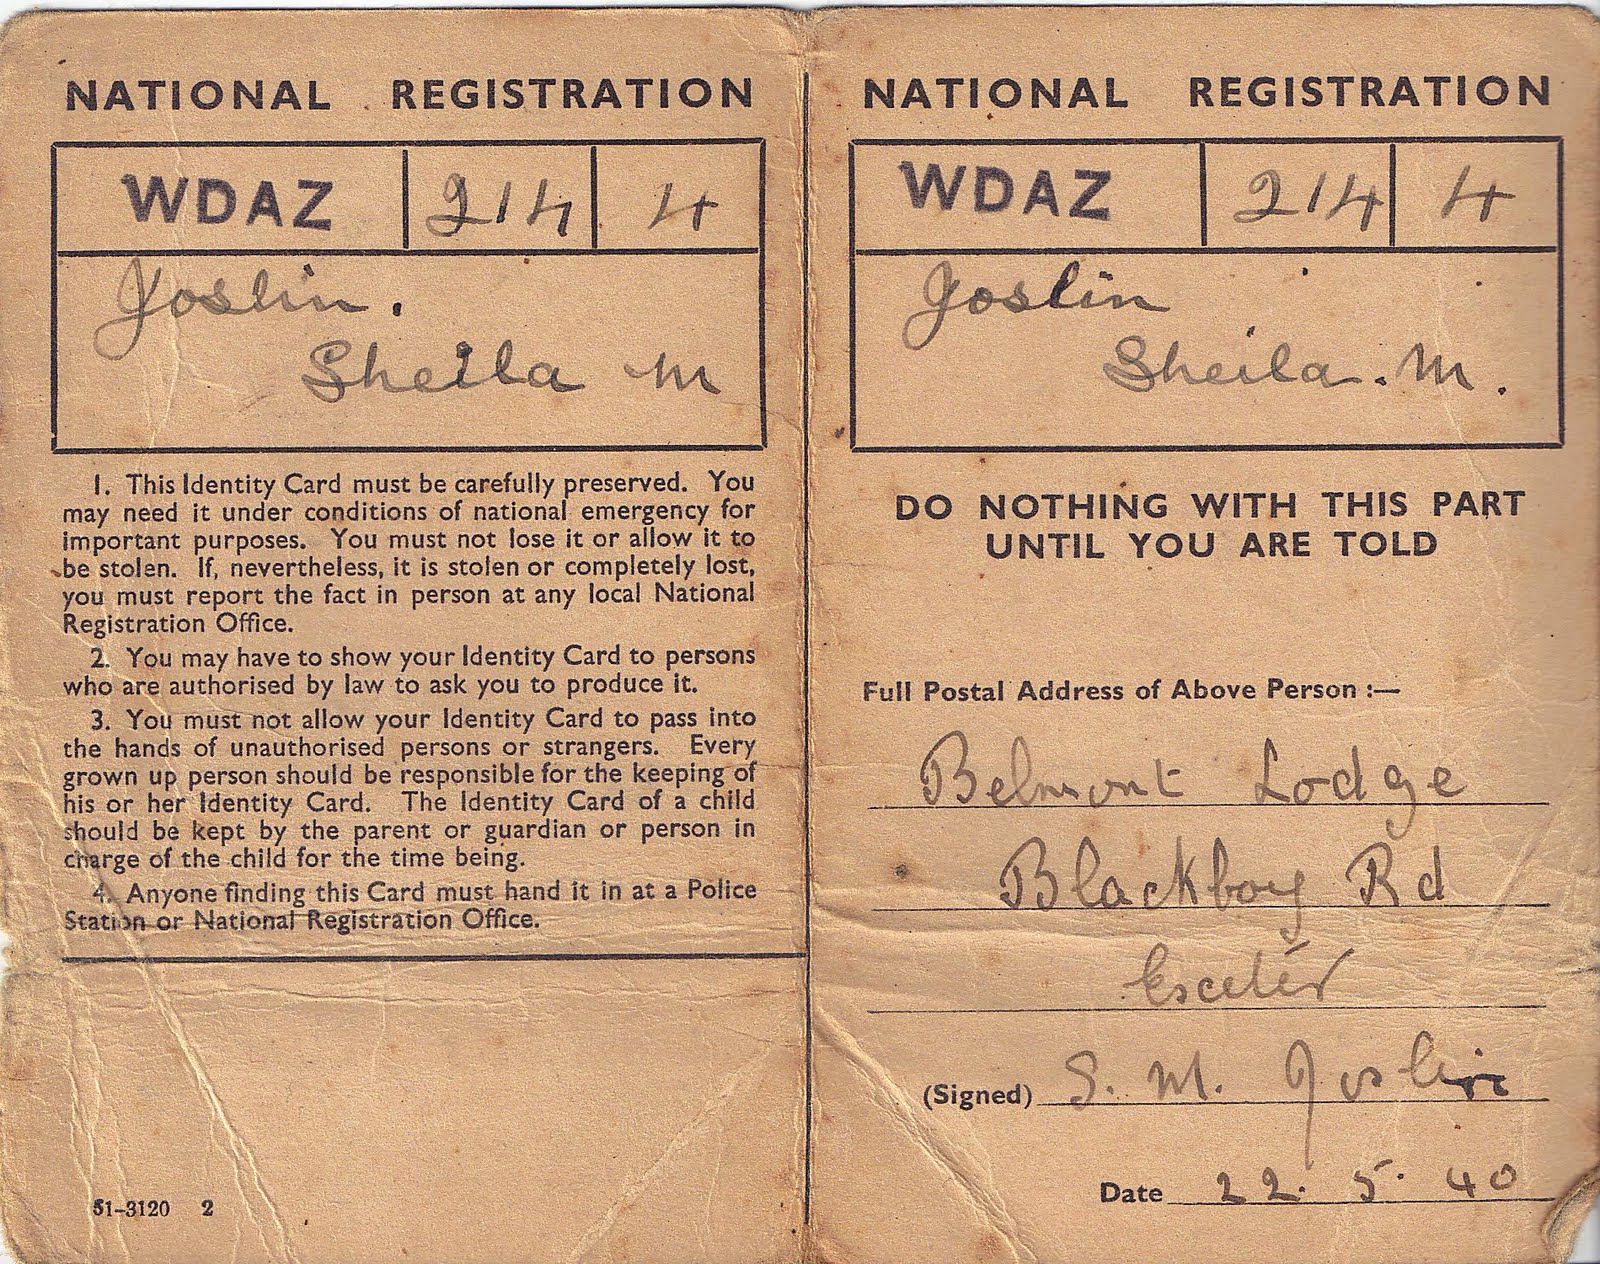 NATIONAL REGISTRATION
WDAZ 214 4
Joslin.
Sheila M
1. This Identity Card must be carefully preserved. You
may need it under conditions of national emergency for
important purposes. You must not lose it or allow it to
be stolen. If, nevertheless, it is stolen or completely lost,
you must report the fact in person at any local National
Registration Office.
2. You may have to show your Identity Card to persons
who are authorised by law to ask you to produce it.
3. You must not allow your Identity Card to pass into
the hands of unauthorised persons or strangers. Every
grown up person should be responsible for the keeping of
his or her Identity Card. The Identity Card of a child
should be kept by the parent or guardian or person in
charge of the child for the time being.
4. Anyone finding this Card must hand it in at a Police
Station or National Registration Office.
51-3120 2
NATIONAL REGISTRATION
WDAZ 214 4
Joslin
Sheila. M.
DO NOTHING WITH THIS PART
UNTIL YOU ARE TOLD
Full Postal Address of Above Person :—
Belmont Lodge
Blackboy Rd
Exeter
(Signed) S. M. Joslin
Date 22. 5. 40